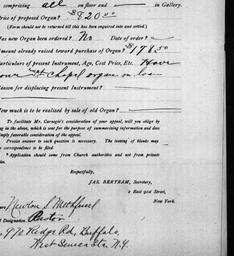 comprising all on floor and — in Gallery.
Price of proposed Organ? $820.00
(Form should not be returned till this has been ascertained and settled.)
Was new Organ ordered? No Date of order?
Amount already raised toward purchase of Organ? $178.50
Particulars of present Instrument, Age, Cost Price, Etc. Have
our chapel organ on loan
Reason for displacing present Instrument?
How much is to be realised by sale of old Organ?
To facilitate Mr. Carnegie's consideration of your appeal, will you oblige by
in the above, which is sent for the purpose of summarising information and does
imply favorable consideration of the appeal.
Precise answer to each question is necessary. The testing of blanks may
correspondence to be filed.
Application should come from Church authorities and not from private
Respectfully,
JAS. BERTRAM, Secretary,
2 East 91st Street,
New York.
Newton S.
Designation Pastor
970 Ridge Rd, Buffalo,
West Seneca Sta. N.Y.